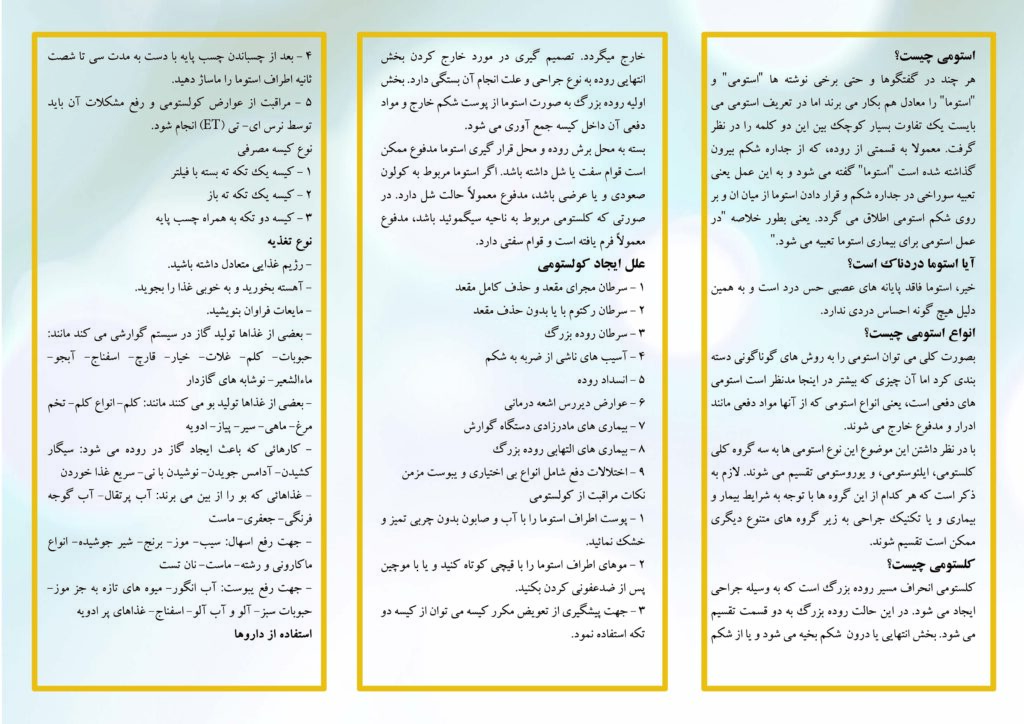 استومی چیست؟
هر چند در گفتگوها و حتی برخی نوشته ها "استومی" و
"استوما" را معادل هم بکار می برند اما در تعریف استومی می
بایست یک تفاوت بسیار کوچک بین این دو کلمه را در نظر
گرفت. معمولا به قسمتی از روده، که از جداره شکم بیرون
گذاشته شده است "استوما" گفته می شود و به این عمل یعنی
تعبیه سوراخی در جداره شکم و قرار دادن استوما از میان ان و بر
روی شکم استومی اطلاق می گردد. یعنی بطور خلاصه "در
عمل استومی برای بیماری استوما تعبیه می شود."
آیا استوما دردناک است؟
خیر، استوما فاقد پایانه های عصبی حس درد است و به همین
دلیل هیچ گونه احساس دردی ندارد.
انواع استومی چیست؟
بصورت کلی می توان استومی را به روش های گوناگونی دسته
بندی کرد اما آن چیزی که بیشتر در اینجا مدنظر است استومی
های دفعی است، یعنی انواع استومی که از آنها مواد دفعی مانند
ادرار و مدفوع خارج می شوند.
با در نظر داشتن این موضوع این نوع استومی ها به سه گروه کلی
کلستومی، ایلئوستومی، و یوروستومی تقسیم می شوند. لازم به
ذکر است که هر کدام از این گروه ها با توجه به شرایط بیمار و
بیماری و یا تکنیک جراحی به زیر گروه های متنوع دیگری
ممکن است تقسیم شوند.
کلستومی چیست؟
کلستومی انحراف مسیر روده بزرگ است که به وسیله جراحی
ایجاد می شود. در این حالت روده بزرگ به دو قسمت تقسیم
می شود. بخش انتهایی یا درون شکم بخیه می شود و یا از شکم
خارج میگردد. تصمیم گیری در مورد خارج کردن بخش
انتهایی روده به نوع جراحی و علت انجام آن بستگی دارد. بخش
اولیه روده بزرگ به صورت استوما از پوست شکم خارج و مواد
دفعی آن داخل کیسه جمع آوری می شود.
بسته به محل برش روده و محل قرار گیری استوما مدفوع ممکن
است قوام سفت یا شل داشته باشد. اگر استوما مربوط به کولون
صعودی و یا عرضی باشد، مدفوع معمولاً حالت شل دارد. در
صورتی که کلستومی مربوط به ناحیه سیگموئید باشد، مدفوع
معمولاً فرم یافته است و قوام سفتی دارد.
علل ایجاد کولستومی
۱ - سرطان مجرای مقعد و حذف کامل مقعد
۲ - سرطان رکتوم با یا بدون حذف مقعد
۳ - سرطان روده بزرگ
۴ - آسیب های ناشی از ضربه به شکم
۵ - انسداد روده
۶ - عوارض دیررس اشعه درمانی
۷ - بیماری های مادرزادی دستگاه گوارش
۸ - بیماری های التهابی روده بزرگ
۹ - اختلالات دفع شامل انواع بی اختیاری و یبوست مزمن
نکات مراقبت از کولستومی
۱ - پوست اطراف استوما را با آب و صابون بدون چربی تمیز و
خشک نمائید.
۲ - موهای اطراف استوما را با قیچی کوتاه کنید و یا با موچین
پس از ضدعفونی کردن بکنید.
۳ - جهت پیشگیری از تعویض مکرر کیسه می توان از کیسه دو
تکه استفاده نمود.
۴ - بعد از چسباندن چسب پایه با دست به مدت سی تا شصت
ثانیه اطراف استوما را ماساژ دهید.
۵ - مراقبت از عوارض کولستومی و رفع مشکلات آن باید
توسط نرس ای- تی (ET) انجام شود.
نوع کیسه مصرفی
۱ - کیسه یک تکه ته بسته با فیلتر
۲ - کیسه یک تکه ته باز
۳ - کیسه دو تکه به همراه چسب پایه
نوع تغذیه
- رژیم غذایی متعادل داشته باشید.
- آهسته بخورید و به خوبی غذا را بجوید.
- مایعات فراوان بنویشید.
- بعضی از غذاها تولید گاز در سیستم گوارشی می کند مانند:
حبوبات- کلم- غلات- خیار- قارچ- اسفناج- آبجو-
ماءالشعیر- نوشابه های گازدار
- بعضی از غذاها تولید بو می کنند مانند: کلم- انواع کلم- تخم
مرغ- ماهی- سیر- پیاز- ادویه
- کارهائی که باعث ایجاد گاز در روده می شود: سیگار
کشیدن- آدامس جویدن- نوشیدن با نی- سریع غذا خوردن
- غذاهائی که بو را از بین می برند: آب پرتقال- آب گوجه
فرنگی- جعفری- ماست
- جهت رفع اسهال: سیب- موز- برنج- شیر جوشیده- انواع
ماکارونی و رشته- ماست- نان تست
- جهت رفع یبوست: آب انگور- میوه های تازه به جز موز-
حبوبات سبز- آلو و آب آلو- اسفناج- غذاهای پر ادویه
استفاده از داروها